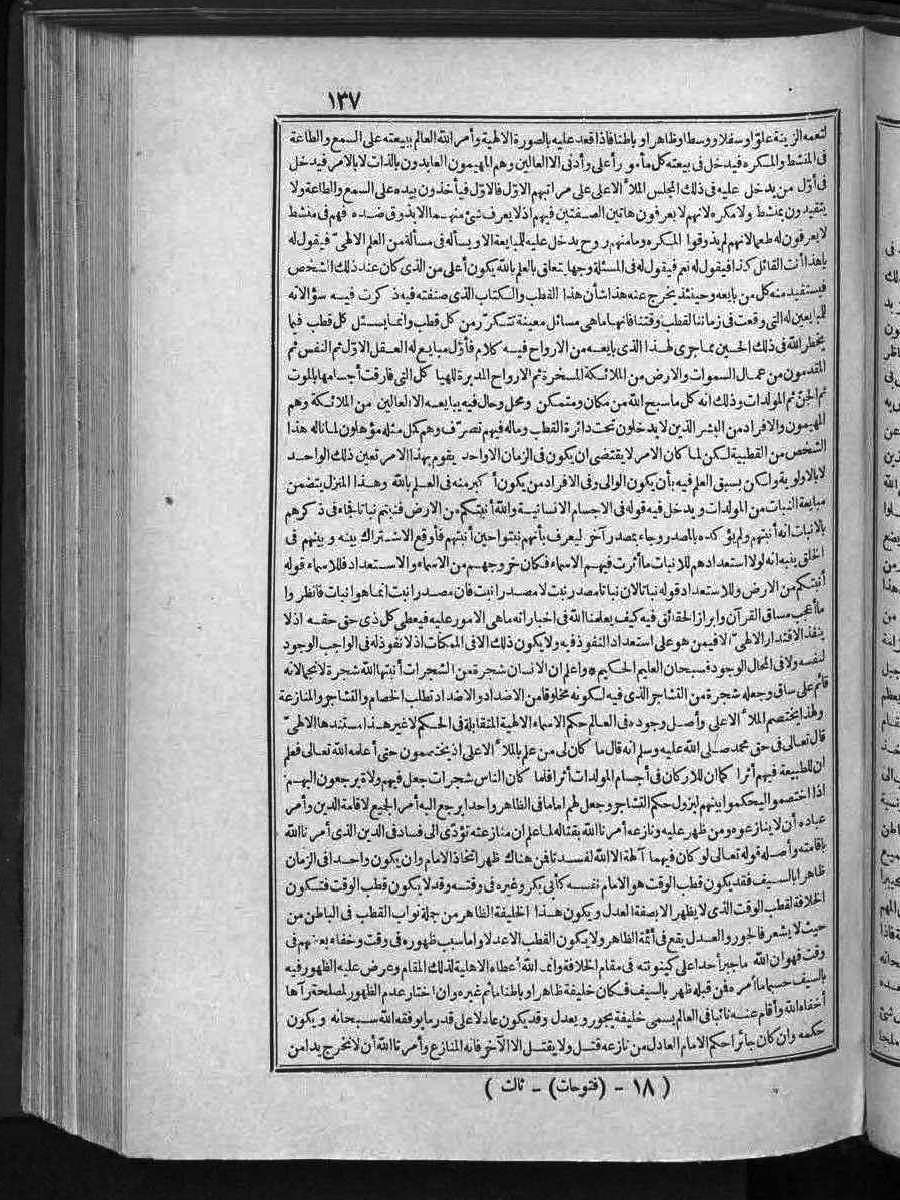 ١٣٧
لتعمه الزينة علوّا وسفلا ووسطا وظاهرا وباطنا فاذا قعد عليه بالصورة الالهية وأمر الله العالم ببيعته على السمع والطاعة
فى المنشط والمكره فيدخل فى بيعته كل مأمور أعلى وأدنى الا العالين وهم المهيمون العابدون بالذات لا بالامر فيدخل
فى أوّل من يدخل عليه فى ذلك المجلس الملأ الاعلى على مراتبهم الاوّل فالاوّل فيأخذون بيده على السمع والطاعة ولا
يتقيدون بمنشط ولا مكره لانهم لا يعرفون هاتين الصفتين فيهم اذ لا يعرف شئ منهما الا بذوق ضده فهم فى منشط
لا يعرفون له طعما لانهم لم يذوقوا المكره وما منهم روح يدخل عليه للمبايعة الا ويسأله فى مسألة من العلم الالهىّ فيقول له
يا هذا أنت القائل كذا فيقول له نعم فيقول له فى المسئلة وجها يتعلق بالعلم بالله يكون أعلى من الذى كان عند ذلك الشخص
فيستفيد منه كل من بايعه وحينئذ يخرج عنه هذا شأن هذا القطب والكتاب الذى صنفته فيه ذكرت فيه سؤالاته
للمبايعين له التى وقعت فى زماننا لقطب وقتنا فانها ما هى مسائل معينة تتكرّر من كل قطب وانما يسئل كل قطب فيما
يخطر الله فى ذلك الحين مما جرى لهذا الذى بايعه من الارواح فيه كلام فأوّل مبايع له العقل الاوّل ثم النفس ثم
المقدمون من عمال السموات والارض من الملائكة المسخرة ثم الارواح المدبرة للهيا كل التى فارقت أجسامها بالموت
ثم الجنّ ثم المولدات وذلك انه كل ما سبح الله من مكان ومتمكن ومحل وحال فيه يبايعه الا العالين من الملائكة وهم
المهيمون والافراد من البشر الذين لا يدخلون تحت دائرة القطب وما له فيهم تصرّف وهم كمل مثله مؤهلون لما ناله هذا
الشخص من القطبية لكن لما كان الامر لا يقتضى ان يكون فى الزمان الا واحد يقوم بهذا الامر تعين ذلك الواحد
لا بالاولوية ولكن بسبق العلم فيه بأن يكون الوالى وفى الافراد من يكون أكبر منه فى العلم بالله وهذا المنزل يتضمن
مبايعة النبات من المولدات ويدخل فيه قوله فى الاجسام الانسانية والله أنبتكم من الارض فنبتم نباتا فجاء فى ذكرهم
بالانبات انه أنبتهم ولم يؤكده بالمصدر وجاء بمصدر آخر ليعرف بأنهم نبتوا حين أنبتهم فأوقع الاشتراك بينه وبينهم فى
الخلق ينبه انه لولا استعدادهم للانبات ما أثرت فيهم الاسماء فكان خروجهم من الاسماء والاستعداد فللاسماء قوله
أنبتكم من الارض وللاستعداد قوله نباتا لان نباتا مصدر نبت لا مصدر انبت فان مصدر انبت انما هو انبات فانظر وا
ما أعجب مساق القرآن وابراز الحقائق فيه كيف يعلمنا الله فى اخباراته ما هى الامور عليه فيعطى كل ذى حق حقه اذ لا
ينفذ الاقتدار الالهىّ الا فيمن هو على استعداد النفوذ فيه ولا يكون ذلك الا فى الممكنات اذ لا نفوذ له فى الواجب الوجود
لنفسه ولا فى المحال الوجود فسبحان العليم الحكيم * واعلم ان الانسان شجرة من الشجرات أنبتها الله شجرة لا نجما لانه
قائم على ساق وجعله شجرة من التشاجر الذى فيه لكونه مخلوقا من الاضداد والاضداد تطلب الخصام والتشاجر والمنازعة
ولهذا يختصم الملأ الاعلى وأصل وجوده فى العالم حكم الاسماء الالهية المتقابلة فى الحكم لا غير هذا مستندها الالهىّ
قال تعالى فى حق محمد صلى الله عليه وسلم انه قال ما كان لى من علم بالملأ الاعلى اذ يختصمون حتى أعلمه الله تعالى فعلم
ان للطبيعة فيهم أثرا كما ان للاركان فى أجسام المولدات أثرا فلما كان الناس شجرات جعل فيهم ولاة يرجعون اليهم
اذا اختصموا ليحكموا بينهم ليزول حكم التشاجر وجعل لهم اماما فى الظاهر واحدا يرجع اليه أمر الجميع لاقامة الدين وأمر
عباده أن لا ينازعوه ومن ظهر عليه ونازعه أمرنا الله بقتاله لما علم ان منازعته تؤدّى الى فساد فى الدين الذى أمرنا الله
باقامته وأصله قوله تعالى لو كان فيهما آلهة الا الله لفسدتا فمن هناك ظهر اتخاذ الامام وان يكون واحدا فى الزمان
ظاهرا بالسيف فقد يكون قطب الوقت هو الامام نفسه كأبى بكر وغيره فى وقته وقد لا يكون قطب الوقت فتكون
الخلافة لقطب الوقت الذى لا يظهر الا بصفة العدل ويكون هذا الخليفة الظاهر من جملة نواب القطب فى الباطن من
حيث لا يشعر فالجور والعدل يقع فى أئمّة الظاهر ولا يكون القطب الا عدلا واما سبب ظهوره فى وقت وخفاء بعضهم فى
وقت فهو ان الله ما جبر أحدا على كينونته فى مقام الخلافة وانما الله أعطاه الاهلية لذلك المقام وعرض عليه الظهور فيه
بالسيف حسبما أمره فمن قبله ظهر بالسيف فكان خليفة ظاهرا وباطنا ما ثم غيره وان اختار عدم الظهور لمصلحة رآها
أخفاه الله وأقام عنه نائبا فى العالم يسمى خليفة يجور ويعدل وقد يكون عادلا على قدر ما يوفقه الله سبحانه ويكون
حكمه وان كان جائرا حكم الامام العادل من نازعه قتل ولا يقتل الا الآخر فانه المنازع وأمرنا الله أن لا نخرج يدا من
( ١٨ - (فتوحات) - ثالث )